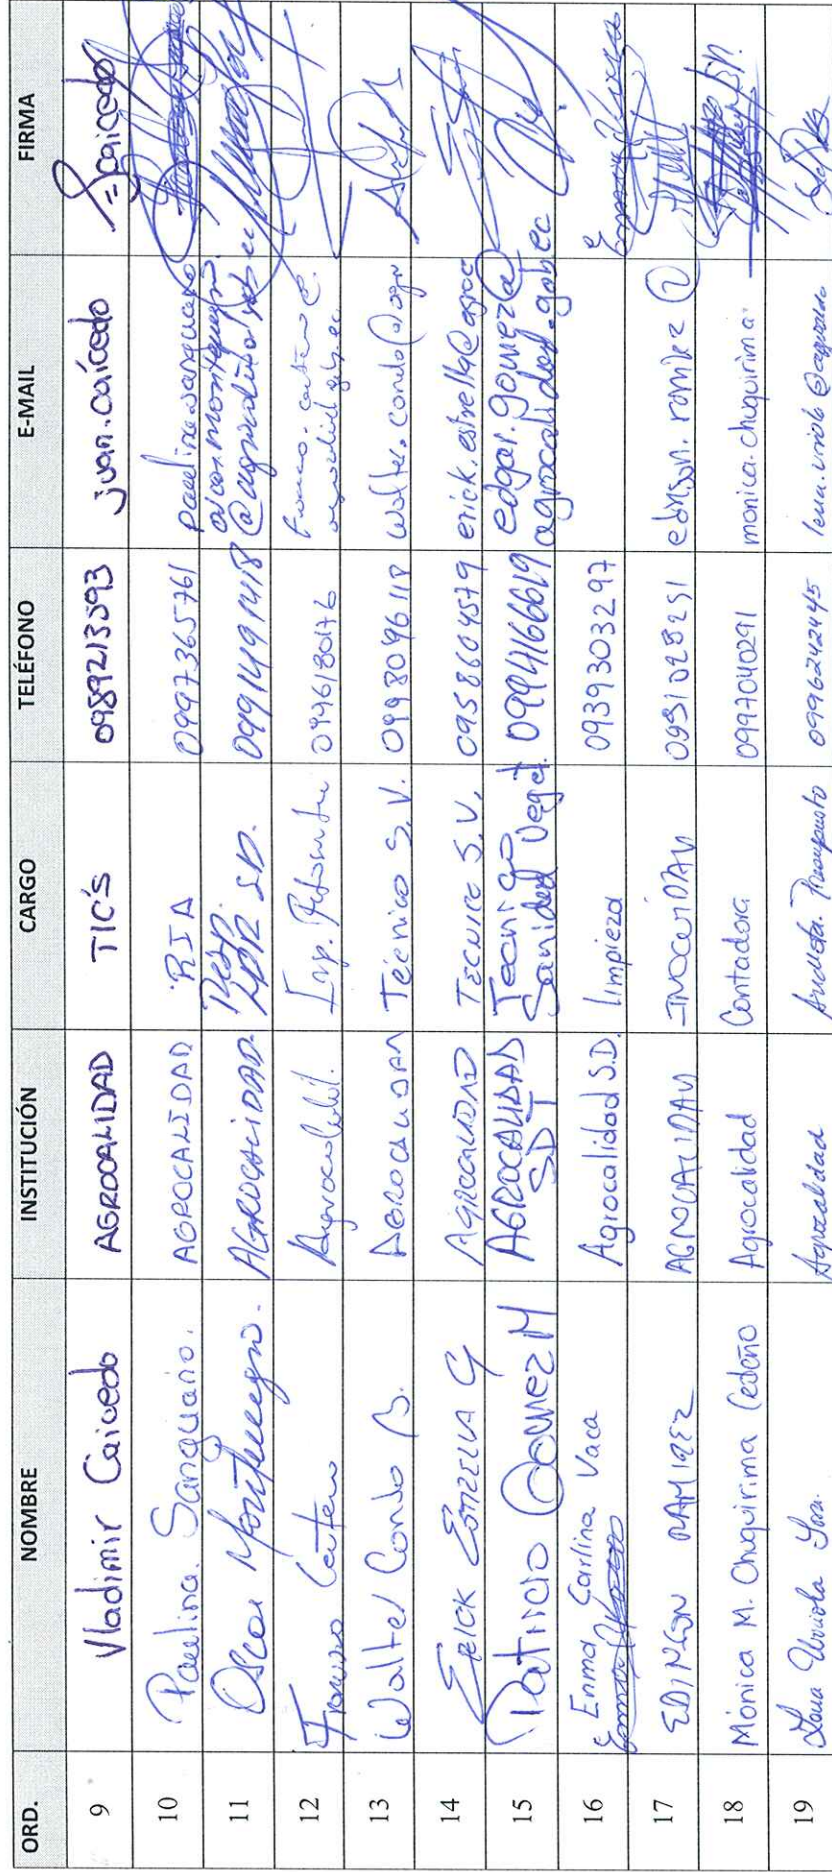 ORD. NOMBRE INSTITUCIÓN CARGO TELÉFONO E-MAIL FIRMA
9 Vladimir Caicedo AGROCALIDAD TIC'S 0989213593 juan.caicedo Jcaicedo
10 Paulina Sanguano. AGROCALIDAD RIA 0997365761 paulina.sanguano
11 Oscar Montenegro. AGROCALIDAD. Resp. S.D. 0991491418 oscar.montenegro @agrocalidad.gob.ec
12 Centeno Agrocalid. Insp.
13 Walter Condo B. AGROCALIDAD Técnico S.V. 0998096118 walter.condo@agr
14 ERICK ESTRELLA G AGROCALIDAD TECNICO S.V. 0958604579 erick.estrella@agroc
15 Patricio Gomez M AGROCALIDAD SDT Tecnico Sanidad Veget. 0994166619 edgar.gomez@ agrocalidad.gob.ec
16 Enma Carlina Vaca Agrocalidad S.D. Limpieza 0939303297
17 EDINSON RAMIREZ AGROCALIDAD INOCUIDAD edinson.ramirez @
18 Mónica M. Chuquirima Cedeño Agrocalidad Contadora 0997040291 monica.chuquirima.
19 Agrocalidad Analista. Presupuesto 0996242445